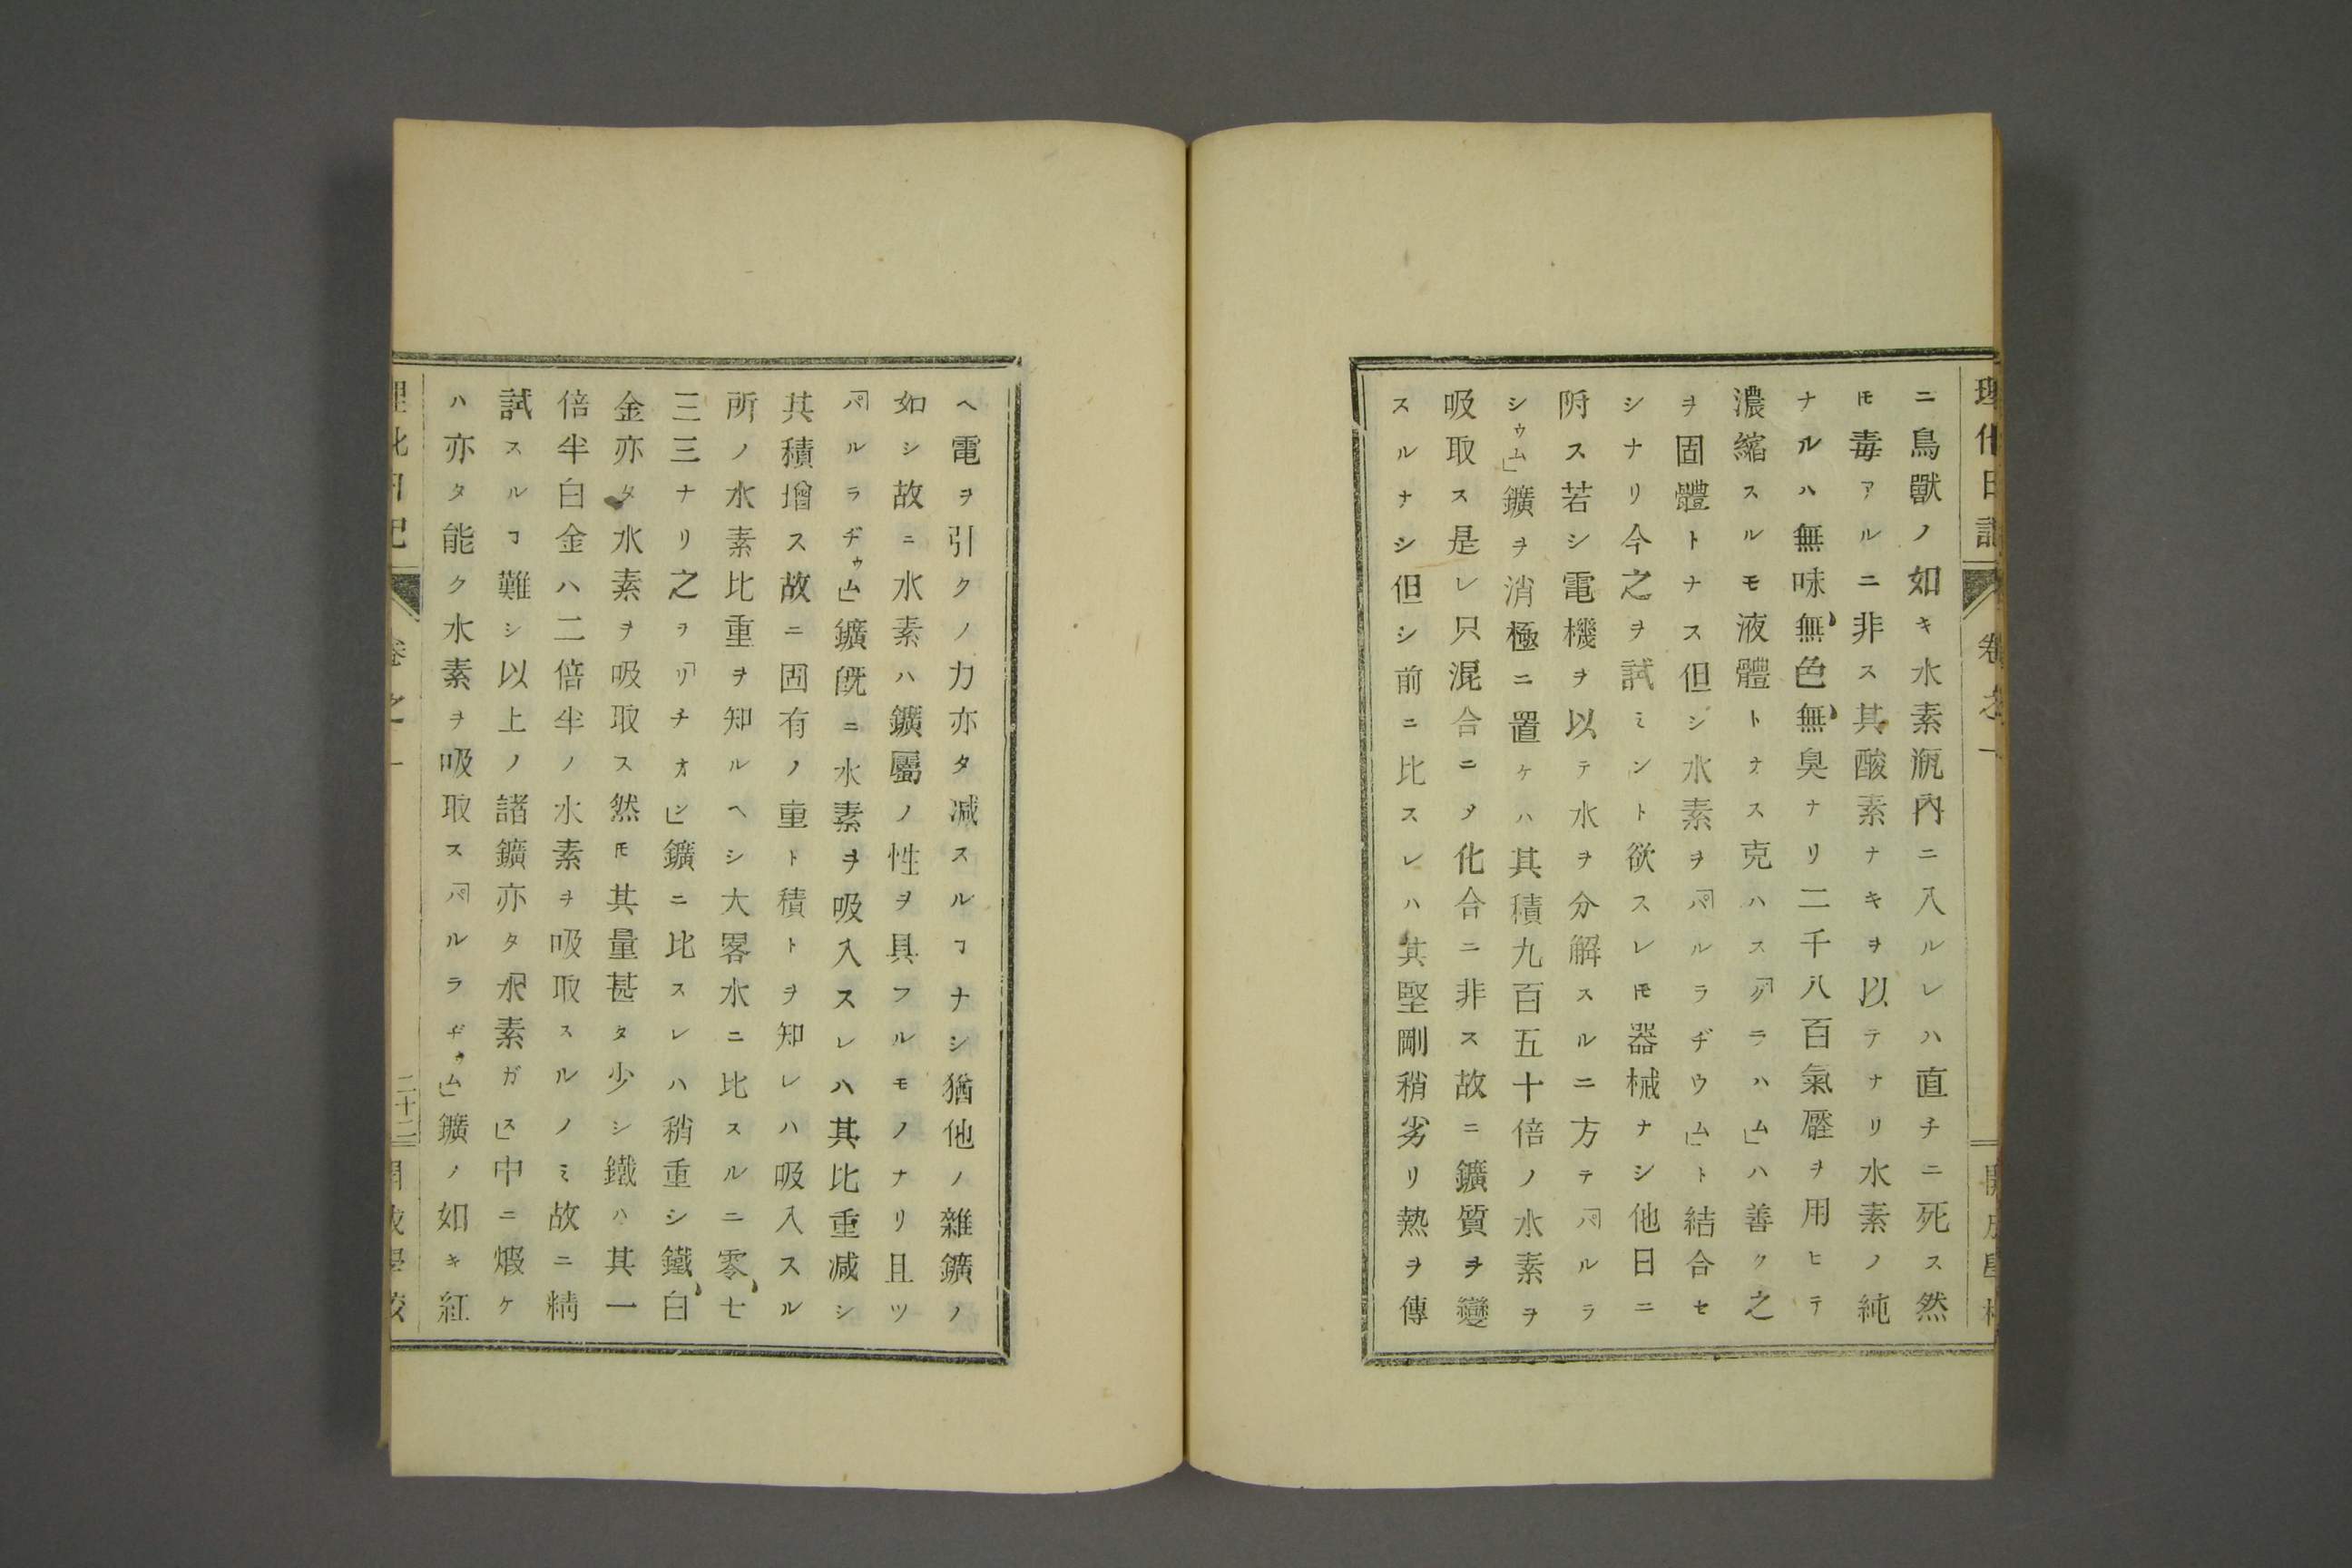 理化日記 卷之一
ニ鳥獸ノ如キ水素瓶內ニ入ルレハ直チニ死ス然
𪜈毒アルニ非ス其酸素ナキヲ以テナリ水素ノ純
ナルハ無味、無色、無臭ナリ二千八百氣壓ヲ用ヒテ
濃縮スルモ液體トナス克ハス「グラハム」ハ善ク之
ヲ固體トナス但シ水素ヲ「パルラヂウム」ト結合セ
シナリ今之ヲ試ミント欲スレ𪜈器械ナシ他日ニ
附ス若シ電機ヲ以テ水ヲ分解スルニ方テ「パルラ
シゥム」鑛ヲ消極ニ置ケハ其積九百五十倍ノ水素ヲ
吸取ス是レ只混合ニメ化合ニ非ス故ニ鑛質ヲ變
スルナシ但シ前ニ比スレハ其堅剛稍劣リ熱ヲ傳
ヘ電ヲ引クノ力亦タ減スルヿナシ猶他ノ雜鑛ノ
如シ故ニ水素ハ鑛屬ノ性ヲ具フルモノナリ且ツ
「パルラヂゥム」鑛旣ニ水素ヲ吸入スレハ其比重減シ
其積增ス故ニ固有ノ重ト積トヲ知レハ吸入スル
所ノ水素比重ヲ知ルヘシ大畧水ニ比スルニ零、七
三三ナリ之ヲ「リチオン」鑛ニ比スレハ稍重シ鐵、白
金亦タ水素ヲ吸取ス然𪜈其量甚タ少シ鐵ハ其一
倍半白金ハ二倍半ノ水素ヲ吸取スルノミ故ニ精
試スルヿ難シ以上ノ諸鑛亦タ「水素ガス」中ニ煆ケ
ハ亦タ能ク水素ヲ吸取ス「パルラヂゥム」鑛ノ如キ紅
理化日記 卷之一 二十二 開成學校